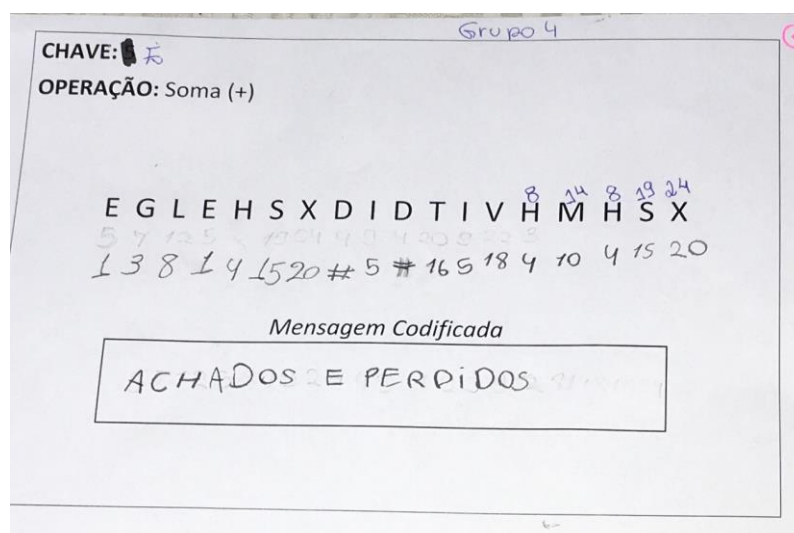 Grupo 4
CHAVE: E
OPERAÇÃO: Soma (+)
8 14 8 19 24
E G L E H S X D I D T I V H M H S X
1 3 8 1 4 15 20 # 5 # 16 5 18 4 10 4 15 20
Mensagem Codificada
ACHADOS E PERDIDOS